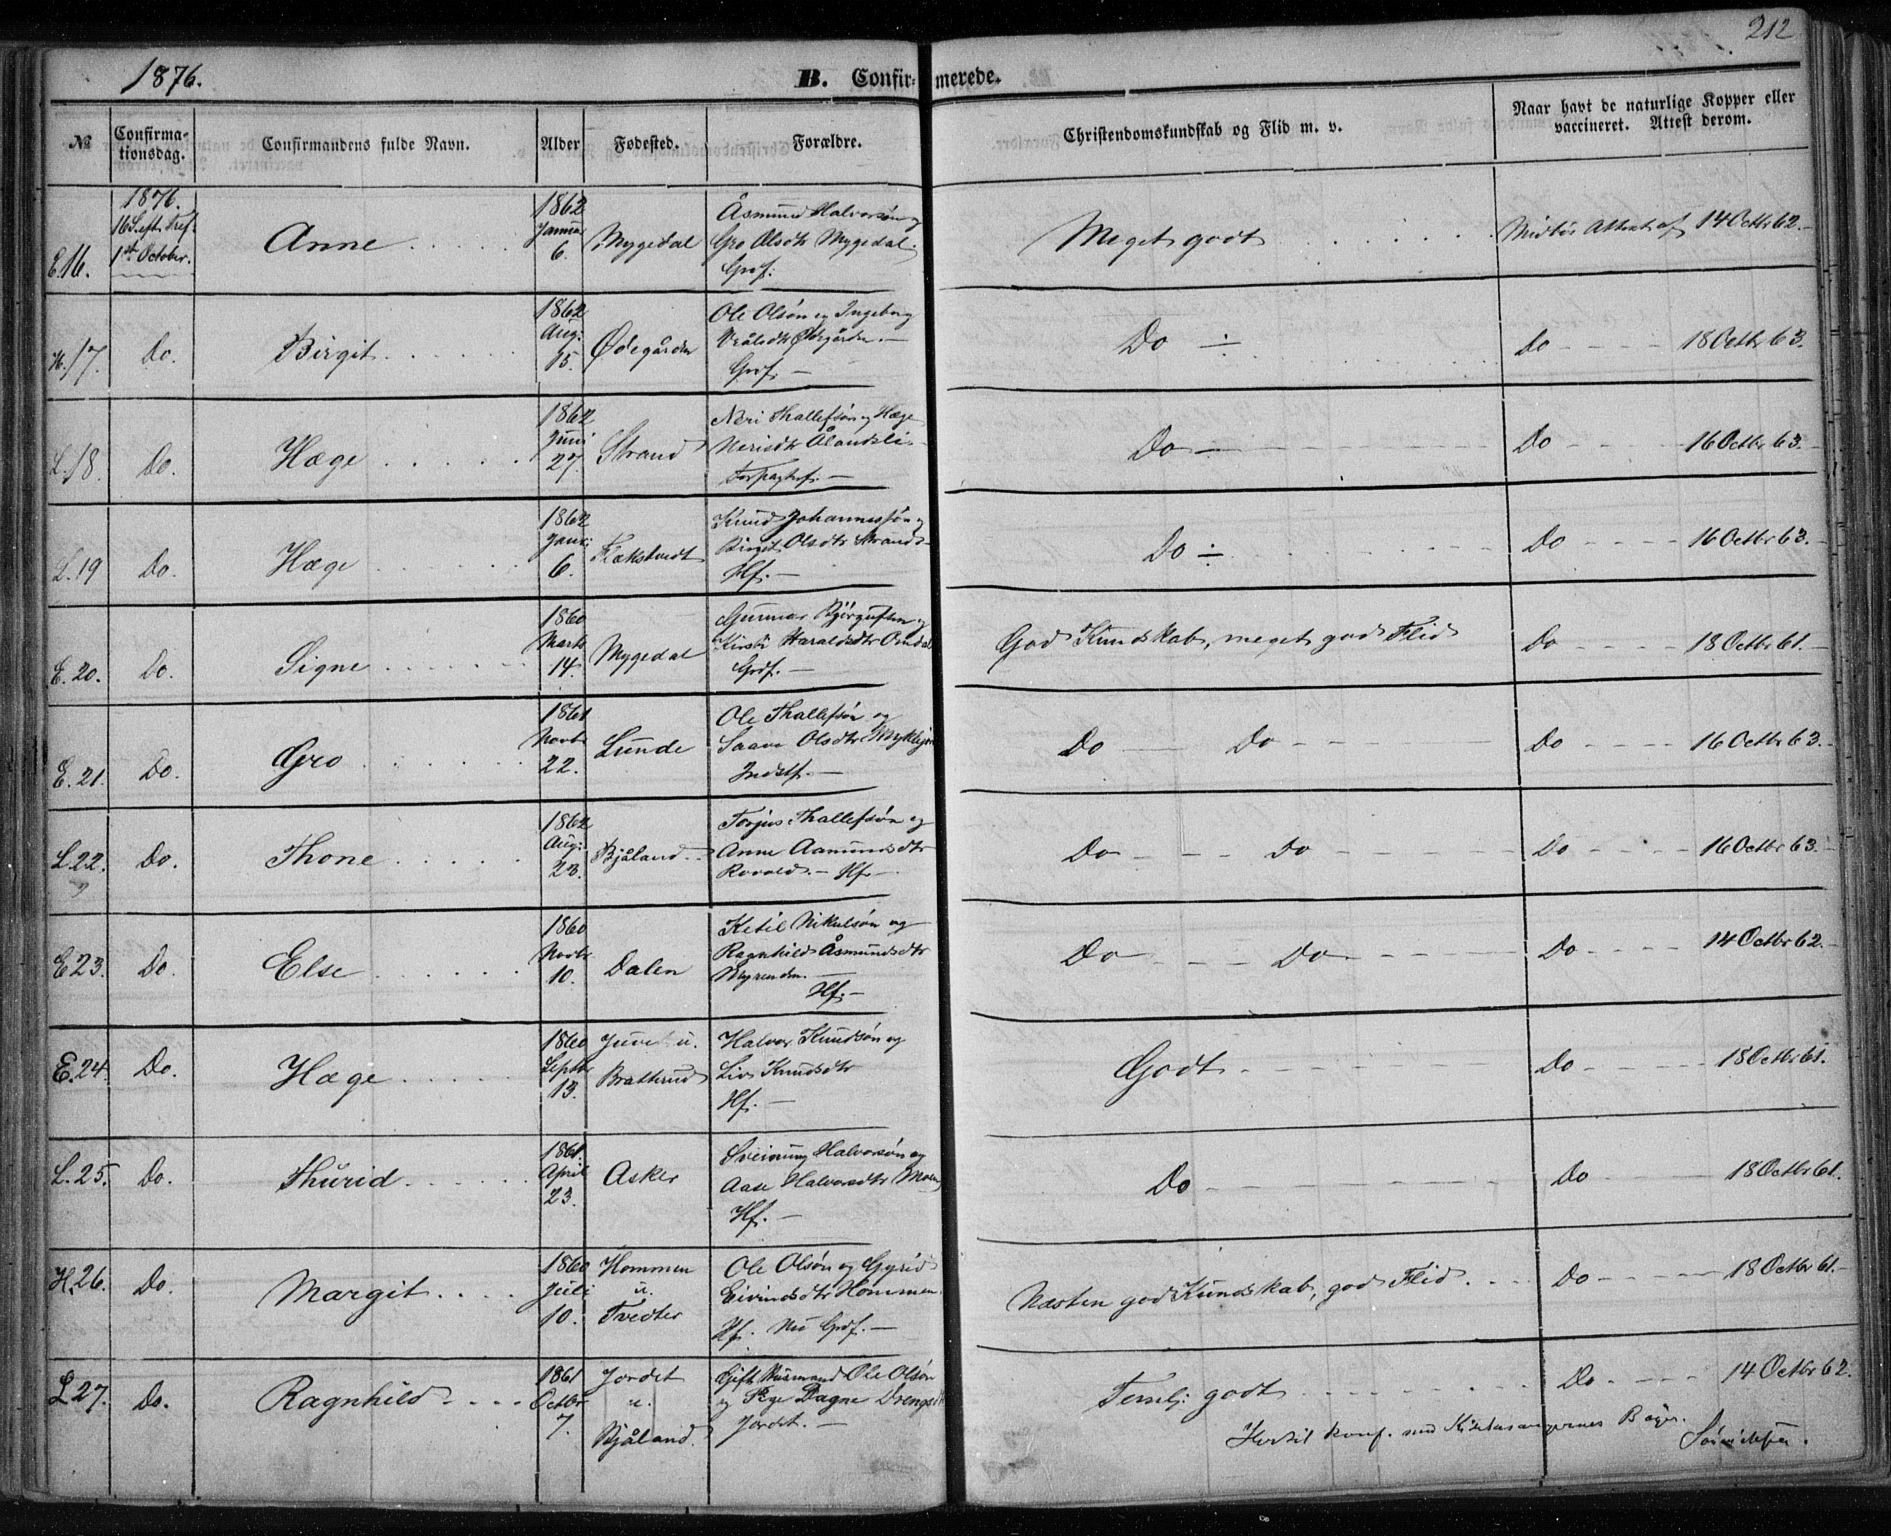 212
1876.
B. Confirmerede.
№
Confirmationsdag.
Confirmandens fulde Navn.
Alder
Fødested.
Forældre.
Christendomskundskab og Flid m. v.
Naar havt de naturlige Kopper eller vaccineret. Attest derom.
1876.
16 Sept. Pref.
1st October.
E.16.
Anne
1862
Januar
6.
Mygedal
Åsmund Halvorsøn og
Gro Olsdtr Mygedal.
Grdf.
Meget godt
Attest af 14 Octbr 62.
H.17.
Do.
Birgit
1862
Aug:
15.
Ødegården
Ole Olsøn og Ingeborg
Ødegården.
Grdf.
Do
Do 18 Octbr 63.
L.18.
Do.
Hæge
1862
Juni
27.
Strand
Neri Thallefsøn og Hæge
Nerisdtr Ålandsli
Do
Do 16 Octbr 63.
L.19
Do.
Hæge
1862
Janr:
6.
Flækstvedt
Knud Johannessøn og
Birgit Olsdtr Strand
Hf.
Do
Do 16 Octbr 63.
E.20.
Do.
Signe
1860
Marts
14.
Mygedal
Gunnar Bjørgufsen og
Kirsti Haraldsdtr
Grdf.
God Kundskab, meget god Flid
Do 18 Octbr 61.
E.21.
Do.
Gro
1861
Novbr
22.
Lunde
Ole Thallefsøn og
Saave Olsdtr
Indstf.
Do Do
Do 16 Octbr 63.
L.22.
Do.
Thone
1862
Aug:
23.
Bjåland
Torjus Thallefsøn og
Anne Aamundsdtr
Rovold. Hf.
Do Do
Do 16 Octbr 63.
E.23.
Do.
Else
1860
Novbr
10.
Dalen
Ketil Nikulsøn og
Ragnhild Åsmundsdtr
Myrenden.
Hf.
Do Do
Do 14 Octbr 62.
E.24.
Do.
Hæge
1860
Septbr
13.
Juvet u.
Brattrud
Halvor Knudsøn og
Liv Knudsdtr
Hf.
Godt
Do 18 Octbr 61.
L.25.
Do.
Thurid
1861.
April
23.
Asker
Sveinung Halvorsøn og
Aase Halvorsdtr Moen
Hf.
Do
Do 18 Octbr 61.
H.26.
Do.
Margit
1860
Juli
10.
Hommen
u.
Tvedter
Ole Olsøn og Gyrid
Eivindsdtr Hommen
Hf. Nu Grdf.
Næsten god Kundskab, god Flid
Do 18 Octbr 61.
L.27.
Do.
Ragnhild
1861
Octbr
7.
Jordet
u.
Bjåland.
Gift Husmand Ole Olsøn
og Pige Dagne Drengsdtr
Jordet.
Temlj: godt
Do 14 Octbr 62.
Hertil konf. med Kirkesangernes Bøger.